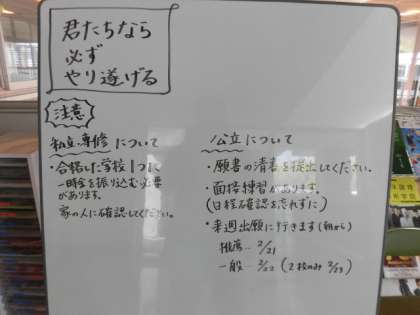 君たちなら
必ず
やり遂げる
注意
私立、専修について
・合格した学校1つに
一時金を振り込む必要
があります。
家の人に確認してください。
公立について
・願書の清書を提出してください。
・面接練習があります。
(日程確認を忘れずに)
・来週出願に行きます(朝から)
推薦… 2/21
一般… 2/22 (2枚のみ 2/23)